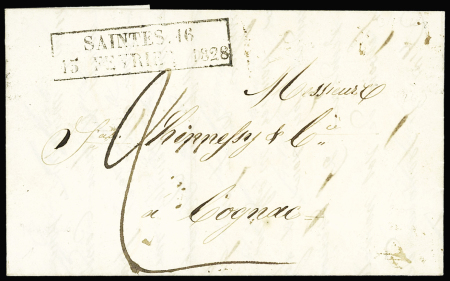 SAINTES. 16
15 FEVRIER 1828
Messieurs
Jas hennessy & Cie
a Cognac